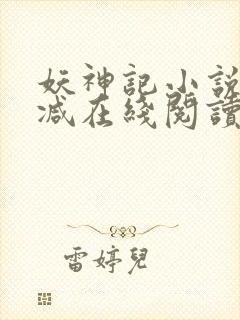 妖神記小說
减在綫閱讀
雷婷兒